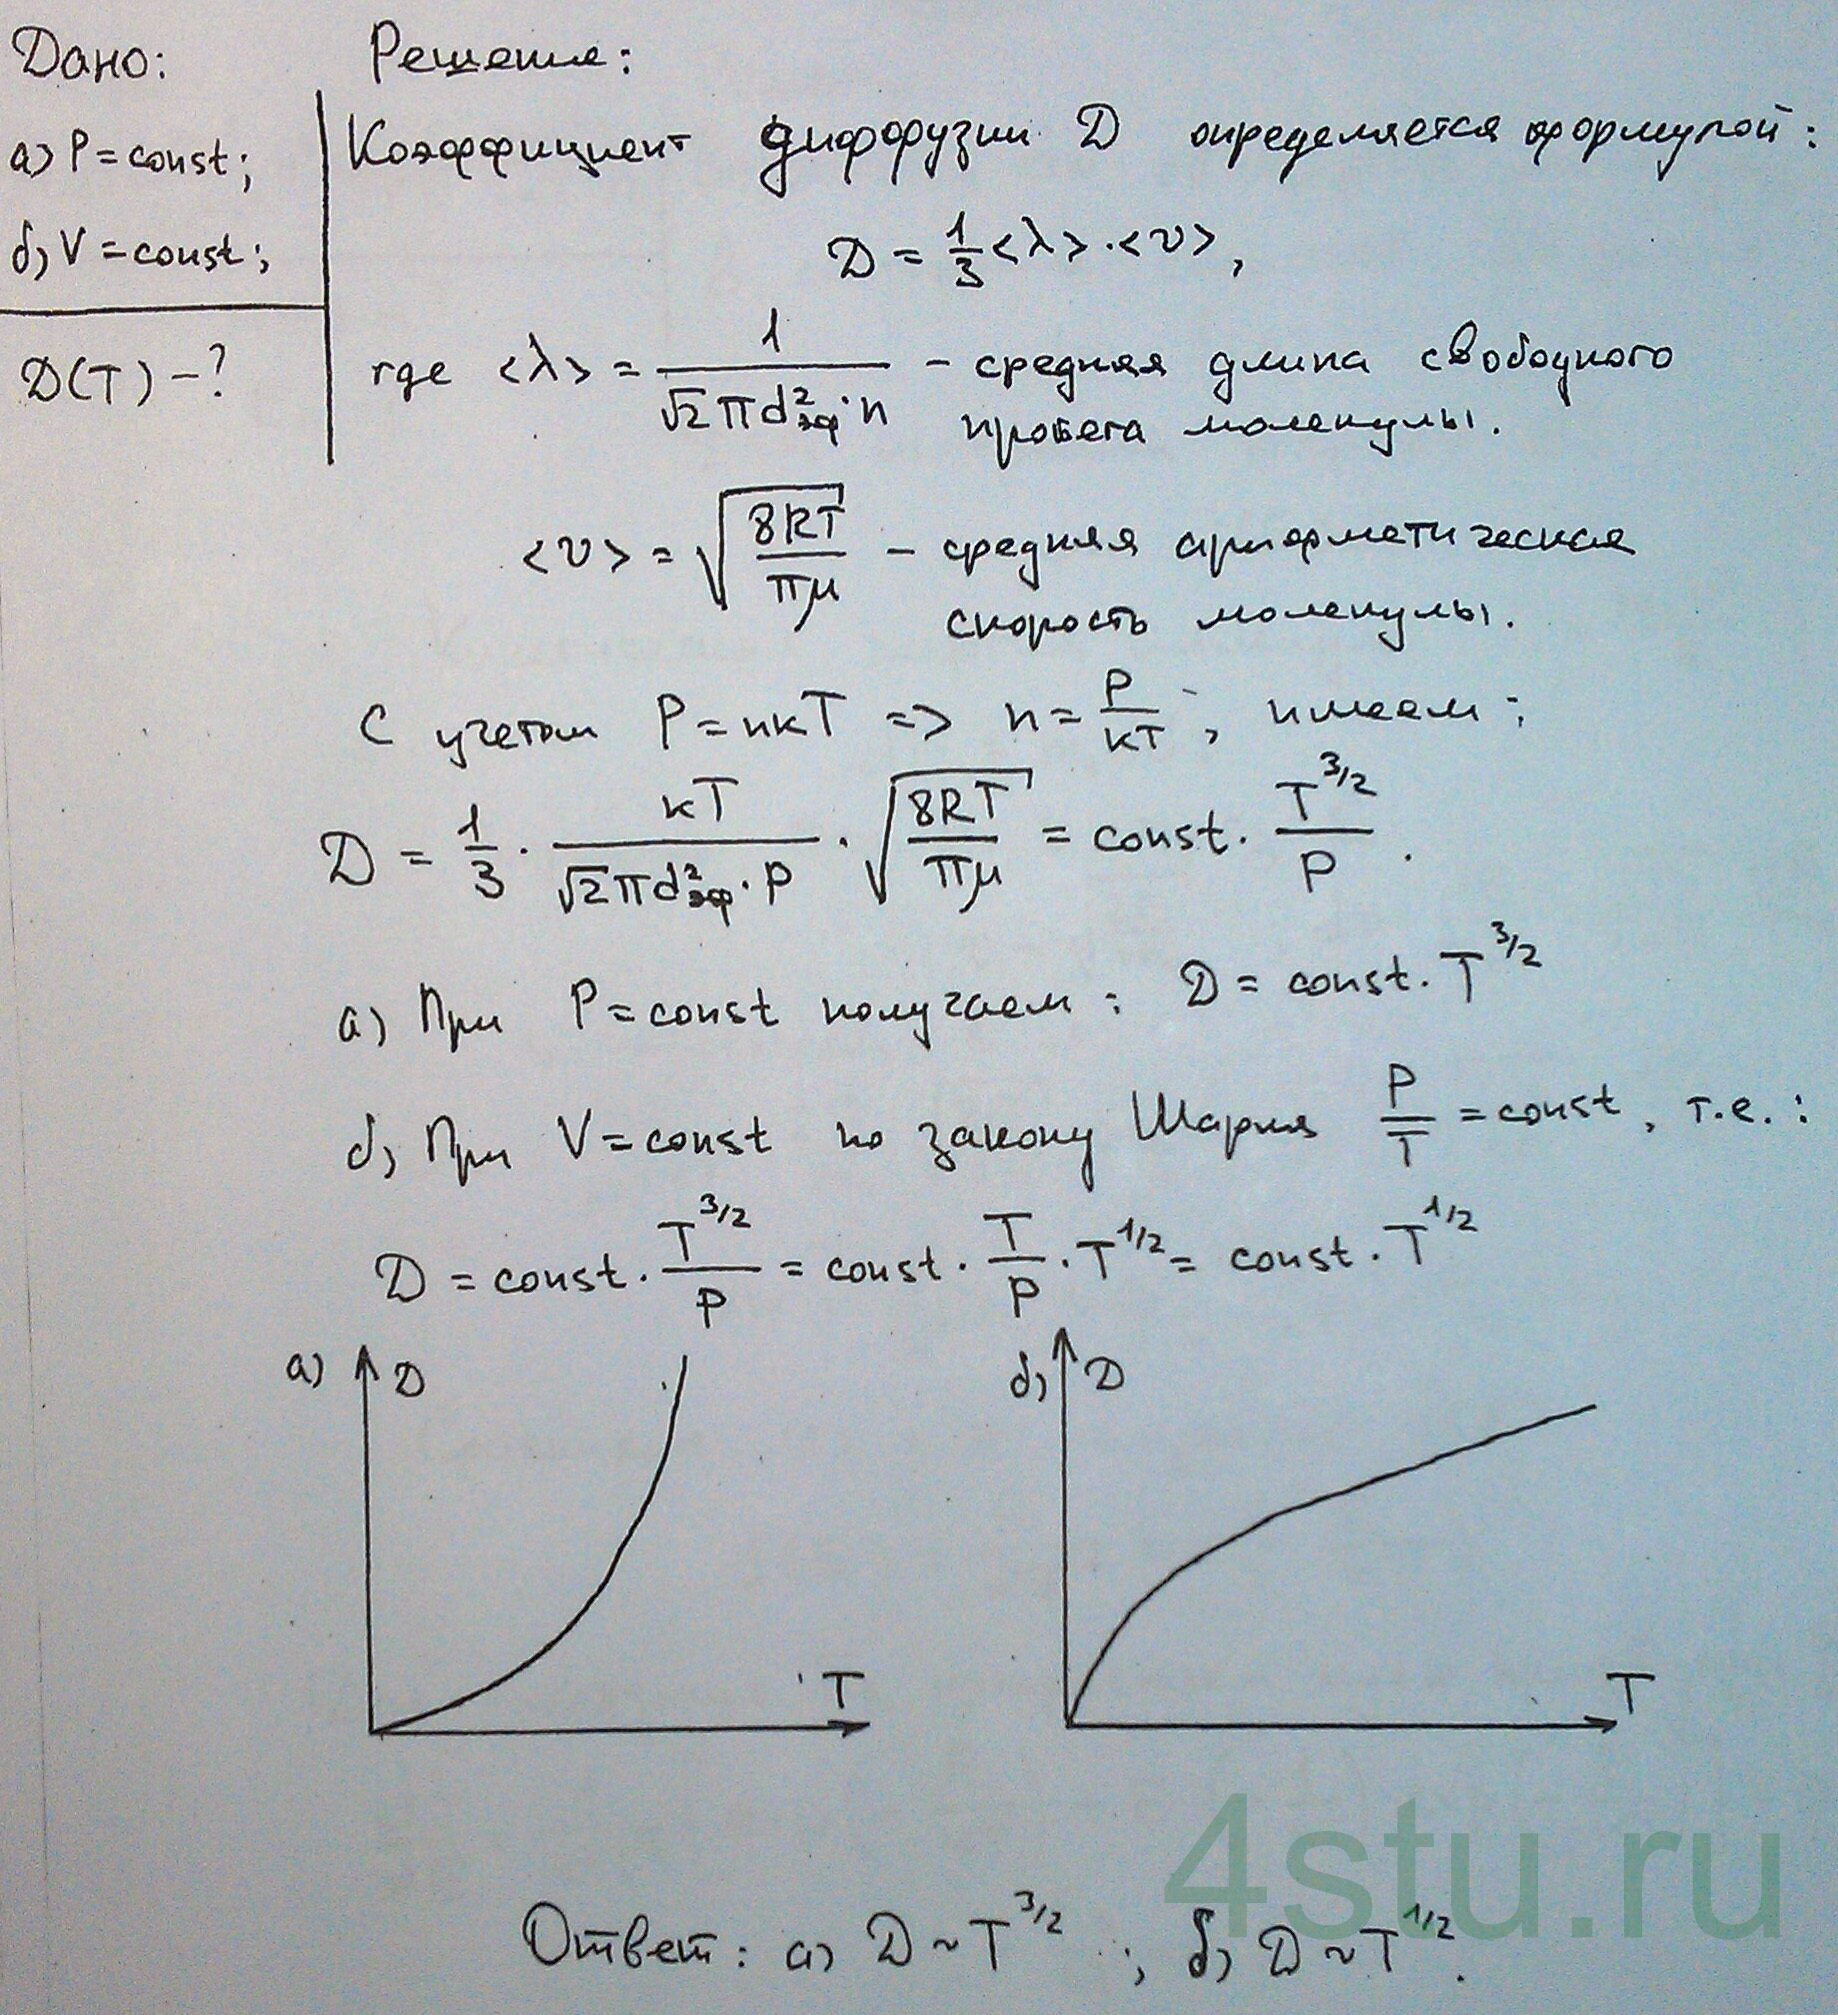 Дано:
а) P = const;
б) V = const;
D(T) – ?
Решение:
Коэффициент диффузии D определяется формулой:
D = 1/3 <λ> · <v>,
где <λ> = 1/(√2 π d²эф · n) – средняя длина свободного
пробега молекулы.
<v> = √(8RT/πμ) – средняя арифметическая
скорость молекулы.
С учетом P = nкT => n = P/кT, имеем:
D = 1/3 · кT/(√2 π d²эф · P) · √(8RT/πμ) = const · T^3/2 / P.
а) При P = const получаем: D = const · T^3/2
б) При V = const по закону Шарля P/T = const, т.е.:
D = const · T^3/2 / P = const · T/P · T^1/2 = const · T^1/2
а) D
T
б) D
T
4stu.ru
Ответ: а) D ~ T^3/2 ; б) D ~ T^1/2.